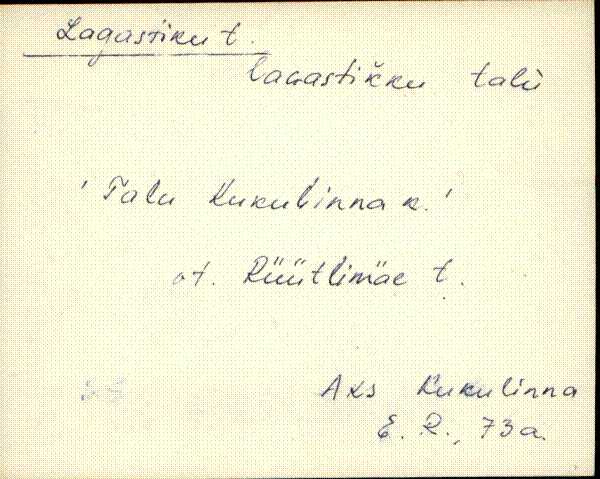 Lagastiku t.
lagastikku talu
'Talu Kukulinna k.'
vt. Rüütlimäe t.
Äks Kukulinna
E. R., 73a.